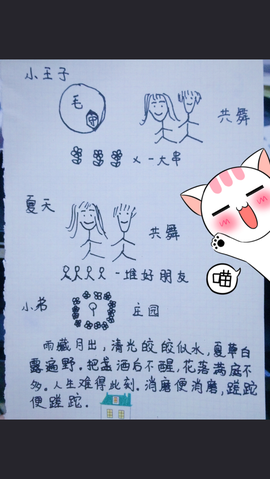 小王子
毛
共舞
x 一大串
夏天
共舞
一堆好朋友
喵
小弟
庄园
雨藏月出，清光皎皎似水，夏草白
露遍野。把盏酒后不醒，花落满庭不
多。人生难得此刻。消磨便消磨，蹉跎
便蹉跎.